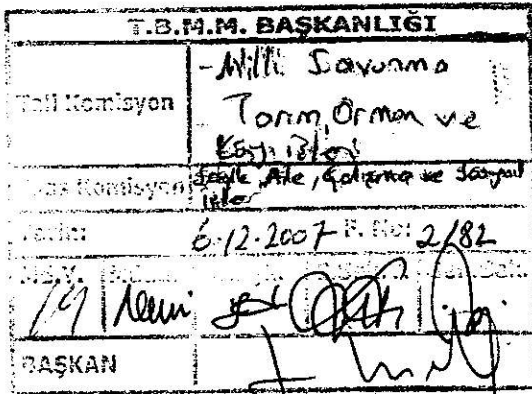 T.B.M.M. BAŞKANLIĞI
Tali Komisyon
- Milli Savunma
Tarım, Orman ve
Köyişleri
Esas Komisyon
Sağlık, Aile, Çalışma ve Sosyal
İşler
Tarih: 6.12.2007 E. No: 2/82
BAŞKAN